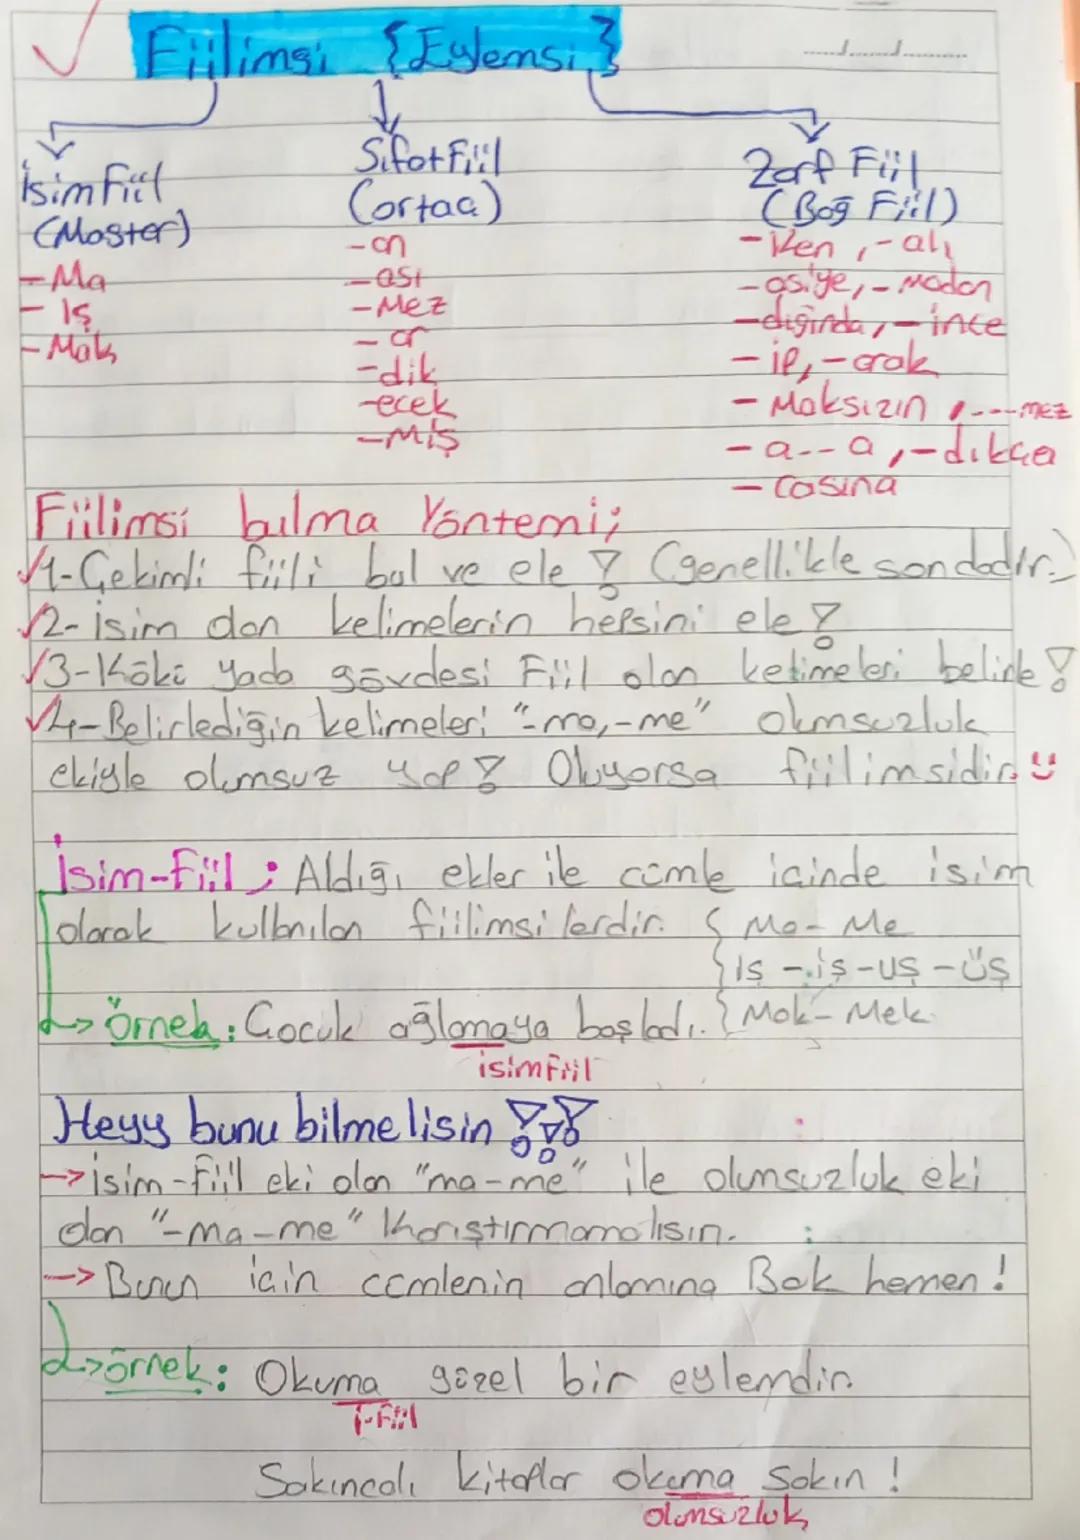 Fiilimsi {Eylemsi}
...../...../..........
İsim Fiil
(Master)
-Ma
- Iş
- Mak
Sıfat Fiil
(ortaç)
-an
-ası
-Mez
-ar
-dik
-ecek
-Miş
Zarf Fiil
(Bağ Fiil)
-iken ,-alı
-asiye,-madan
-diğinda,-ince
-ip,-arak
- Maksızın ,---mez
- a--a ,-dıkça
- casına
Fiilimsi bulma Yöntemi;
1-Çekimli fiili bul ve ele ! (genellikle sondadır.)
2- isim olan kelimelerin hepsini ele !
3-Kökü yada gövdesi Fiil olan kelimeleri belirle !
4-Belirlediğin kelimeleri "-ma,-me" olumsuzluk
ekiyle olumsuz yap ! Oluyorsa fiilimsidir.
İsim-Fiil ; Aldığı ekler ile cümle içinde isim
olarak kullanılan fiilimsilerdir. { Ma- Me
{ Iş -iş -uş -üş
{ Mak- Mek
→ Örnek : Çocuk ağlamaya başladı.
isim Fiil
Heyy bunu bilmelisin !!!
→ isim-Fiil eki olan "ma-me" ile olumsuzluk eki
olan "-ma-me" Karıştırmamalısın.
→ Bunun için cümlenin anlamına Bak hemen !
→ örnek : Okuma güzel bir eylemdir.
İ-Fiil
Sakıncalı kitaplar okuma sakın !
olumsuzluk